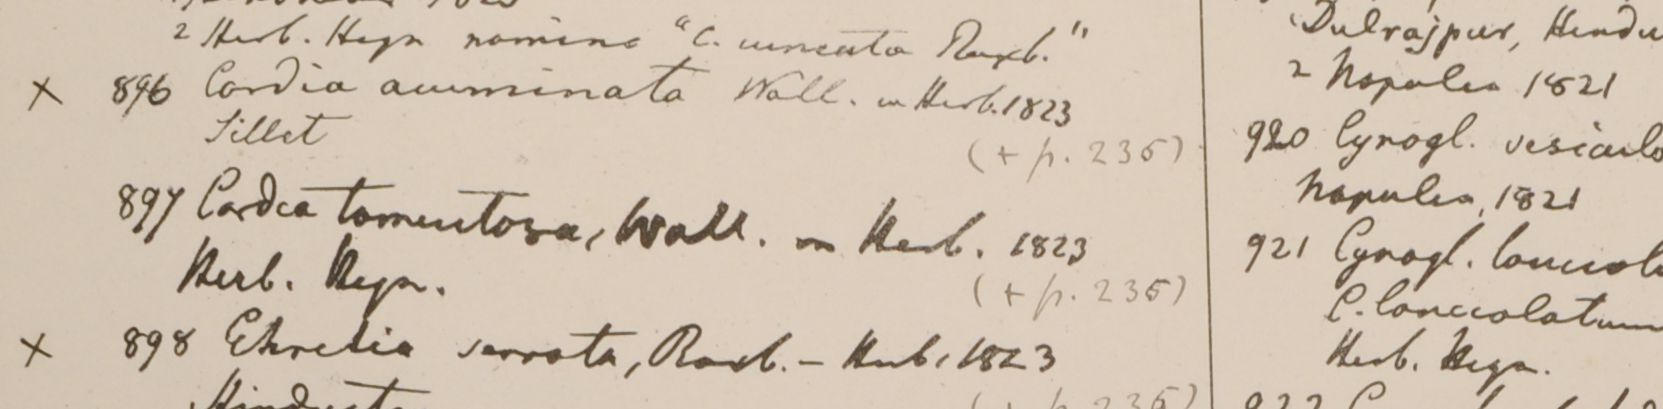 2 Herb. Heyn nomine "C. cuneata Roxb."
× 896 Cordia acuminata Wall. in Herb. 1823
Sillet
(+ p. 235)
897 Cordia tomentosa, Wall. in Herb. 1823
Herb. Heyn.
(+ p. 235)
× 898 Ehretia serrata, Roxb. – Herb. 1823
(+ p. 235)
Dulrajpur, Hindu
2 Napalia 1821
920 Cynogl. vesiculo
Napalia, 1821
921 Cynogl. lanceol
C. lanceolatum
Herb. Heyn.
922 C